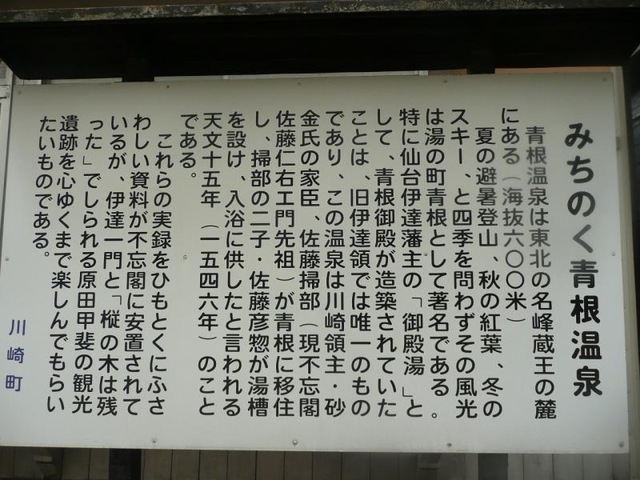 みちのく青根温泉
青根温泉は東北の名峰蔵王の麓
にある（海抜六〇〇米）
夏の避暑登山、秋の紅葉、冬の
スキー、と四季を問わずその風光
は湯の町青根として著名である。
特に仙台伊達藩主の「御殿湯」と
して、青根御殿が造築されていた
ことは、旧伊達領では唯一のもの
であり、この温泉は川崎領主・砂
金氏の家臣、佐藤掃部（現不忘閣
佐藤仁右エ門先祖）が青根に移住
し、掃部の二子・佐藤彦惣が湯槽
を設け、入浴に供したと言われる
天文十五年（一五四六年）のこと
である。
これらの実録をひもとくにふさ
わしい資料が不忘閣に安置されて
いるが、伊達一門と「樅の木は残
った」でしられる原田甲斐の観光
遺跡を心ゆくまで楽しんでもらい
たいものである。
川崎町